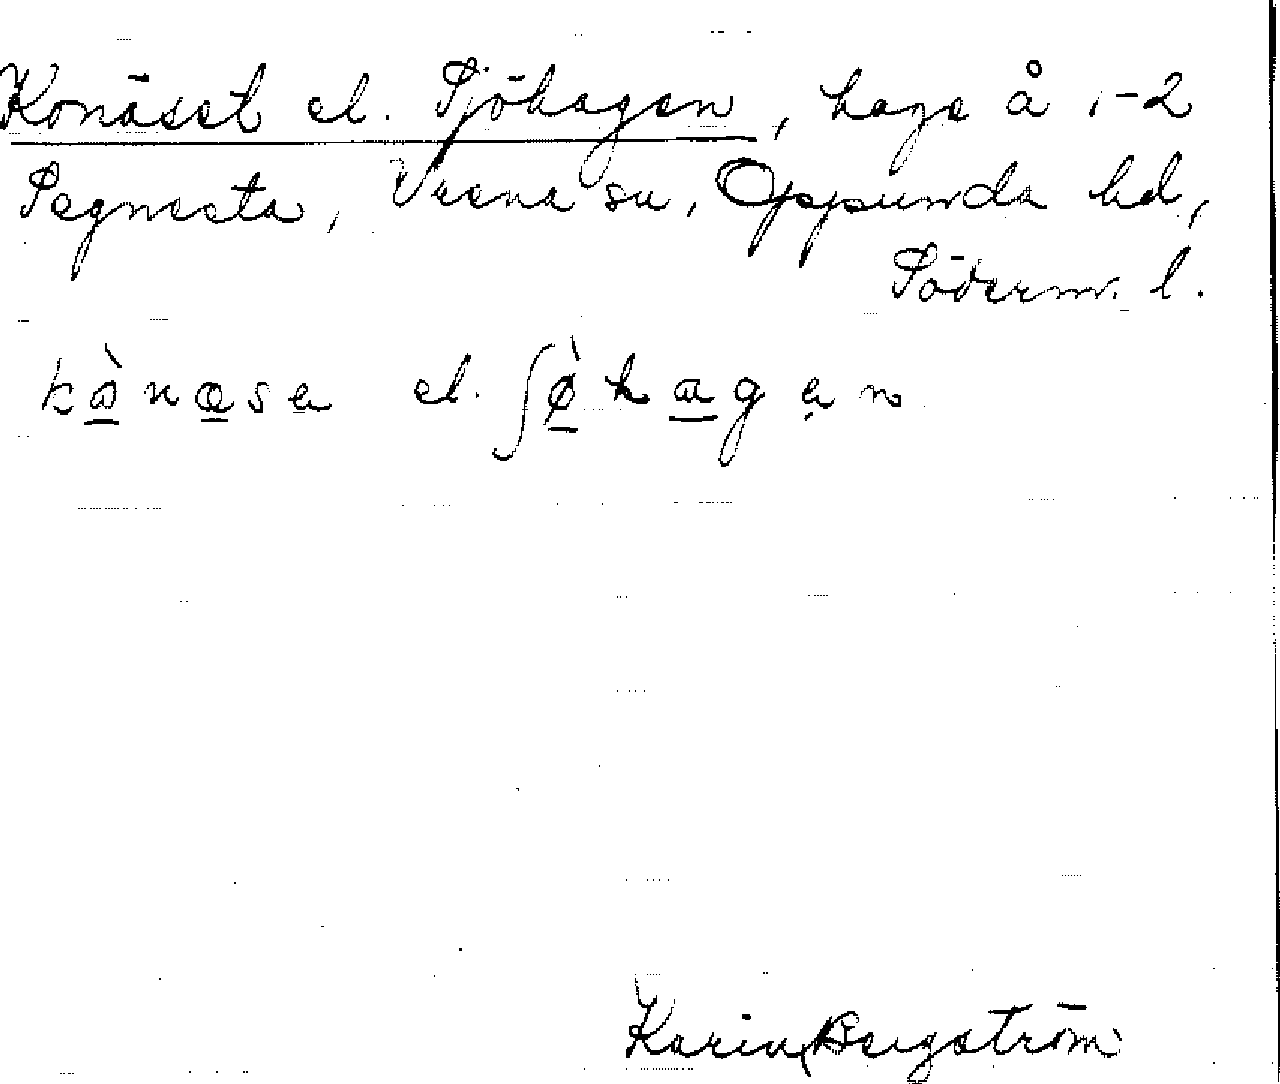 Konäset el. Sjöhagen, hage å 1-2
Segnesta, Vrena sn, Oppunda hd,
Söderm. l.
kònæse el. ʃø̀hagen
Karin Bergström